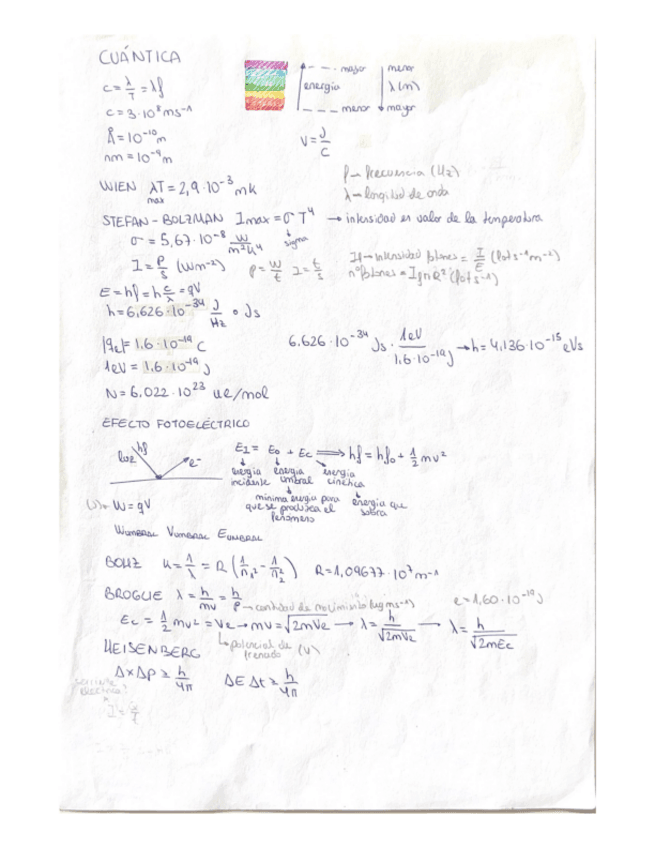 CUÁNTICA
c = λ/T = λf
mayor menor
energía λ(m)
menor mayor
c = 3·10⁸ ms⁻¹
Å = 10⁻¹⁰ m
nm = 10⁻⁹ m
V = J/C
f → frecuencia (Hz)
λ → longitud de onda
WIEN λmax T = 2,9·10⁻³ mk
STEFAN-BOLZMAN Imax = σT⁴ → intensidad en valor de la temperatura
σ = 5,67·10⁻⁸ W/m²K⁴ sigma
I = P/S (Wm⁻²) P = W/t
If → intensidad fotones = I/E (fot s⁻¹ m⁻²)
nº fotones = (fot s⁻¹)
E = hf = h c/λ = qV
h = 6,626·10⁻³⁴ J/Hz o Js
|qe| = 1,6·10⁻¹⁹ C
6,626·10⁻³⁴ Js · 1eV/1,6·10⁻¹⁹J → h = 4,136·10⁻¹⁵ eVs
1eV = 1,6·10⁻¹⁹ J
N = 6,022·10²³ ue/mol
EFECTO FOTOELÉCTRICO
luz hf e⁻
EI = E0 + Ec ⟹ hf = hf0 + 1/2 mv²
energía energía energía
incidente umbral cinética
mínima energía para energía que
que se produzca el sobra
fenómeno
W = qV
Wumbral Vumbral Eumbral
BOHZ k = 1/λ = R (1/n₁² - 1/n₂²) R = 1,09677·10⁷ m⁻¹
BROGLIE λ = h/mv = h/p → cantidad de movimiento (kg ms⁻¹) e = 1,60·10⁻¹⁹ J
Ec = 1/2 mv² = Ve → mv = √2mVe → λ = h/√2mVe → λ = h/√2mEc
potencial de
frenado (V)
HEISENBERG
ΔxΔp ≥ h/4π ΔEΔt ≥ h/4π